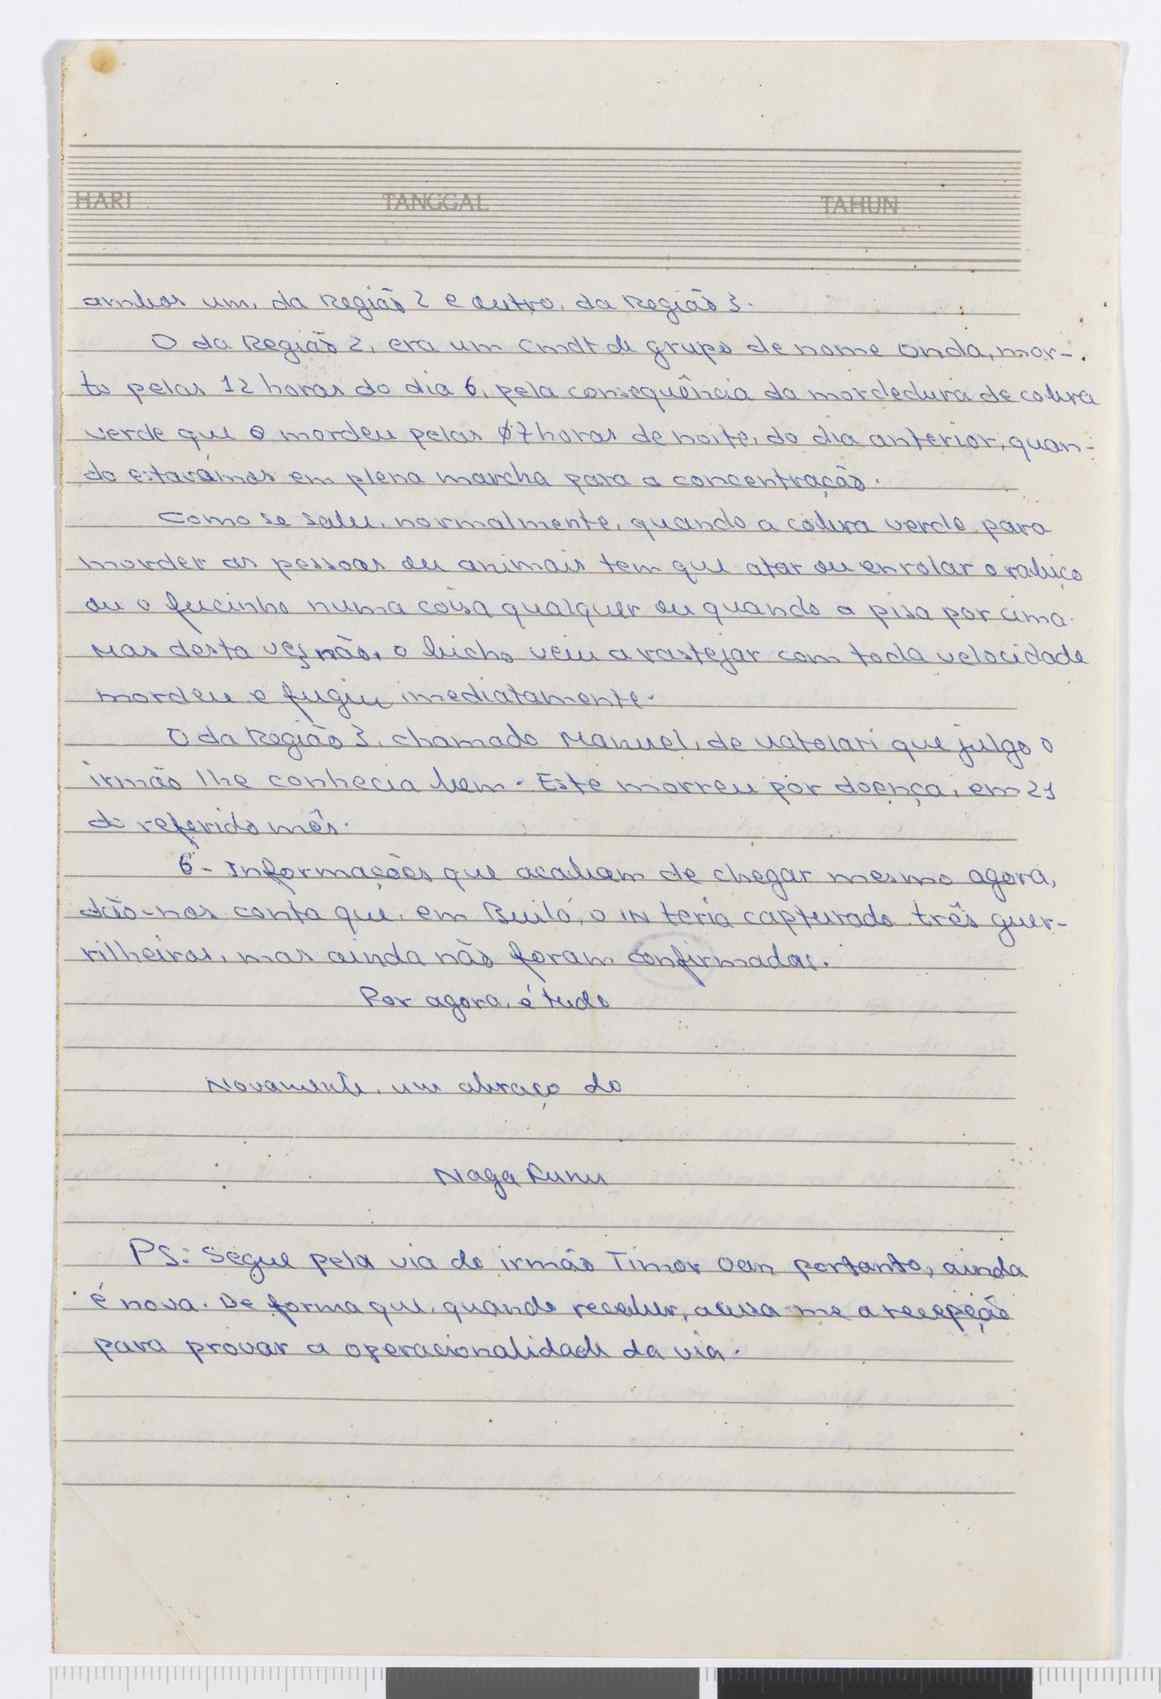 HARI TANGGAL TAHUN
ambos um, da Região 2 e outro, da Região 3.
O da Região 2, era um Cmdt de grupo de nome Onda, mor-
to pelas 12 horas do dia 6, pela consequência da mordedura de cobra
verde que o mordeu pelas 07 horas de noite, do dia anterior, quan-
do estavamos em plena marcha para a concentração.
Como se sabe, normalmente, quando a cobra verde para
morder as pessoas ou animais tem que atar ou enrolar o rabiço
ou o fucinho numa coisa qualquer ou quando a pisa por cima.
Mas desta vez não, o bicho veiu a rastejar com toda velocidade
mordeu e fugiu imediatamente.
O da Região 3, chamado Manuel, de Uatolari que julgo o
irmão lhe conhecia bem. Este morreu por doença, em 21
do referido mês.
6 - Informações que acabam de chegar mesmo agora,
dão-nos conta que, em Builó, o IN teria capturado três guer-
rilheiros, mas ainda não foram confirmadas.
Por agora, é tudo
Novamente, um abraço do
Naga Runu
PS: Segue pela via do irmão Timor Oan portanto, ainda
é nova. De forma que, quando receber, acusa-me a recepção
para provar a operacionalidade da via.